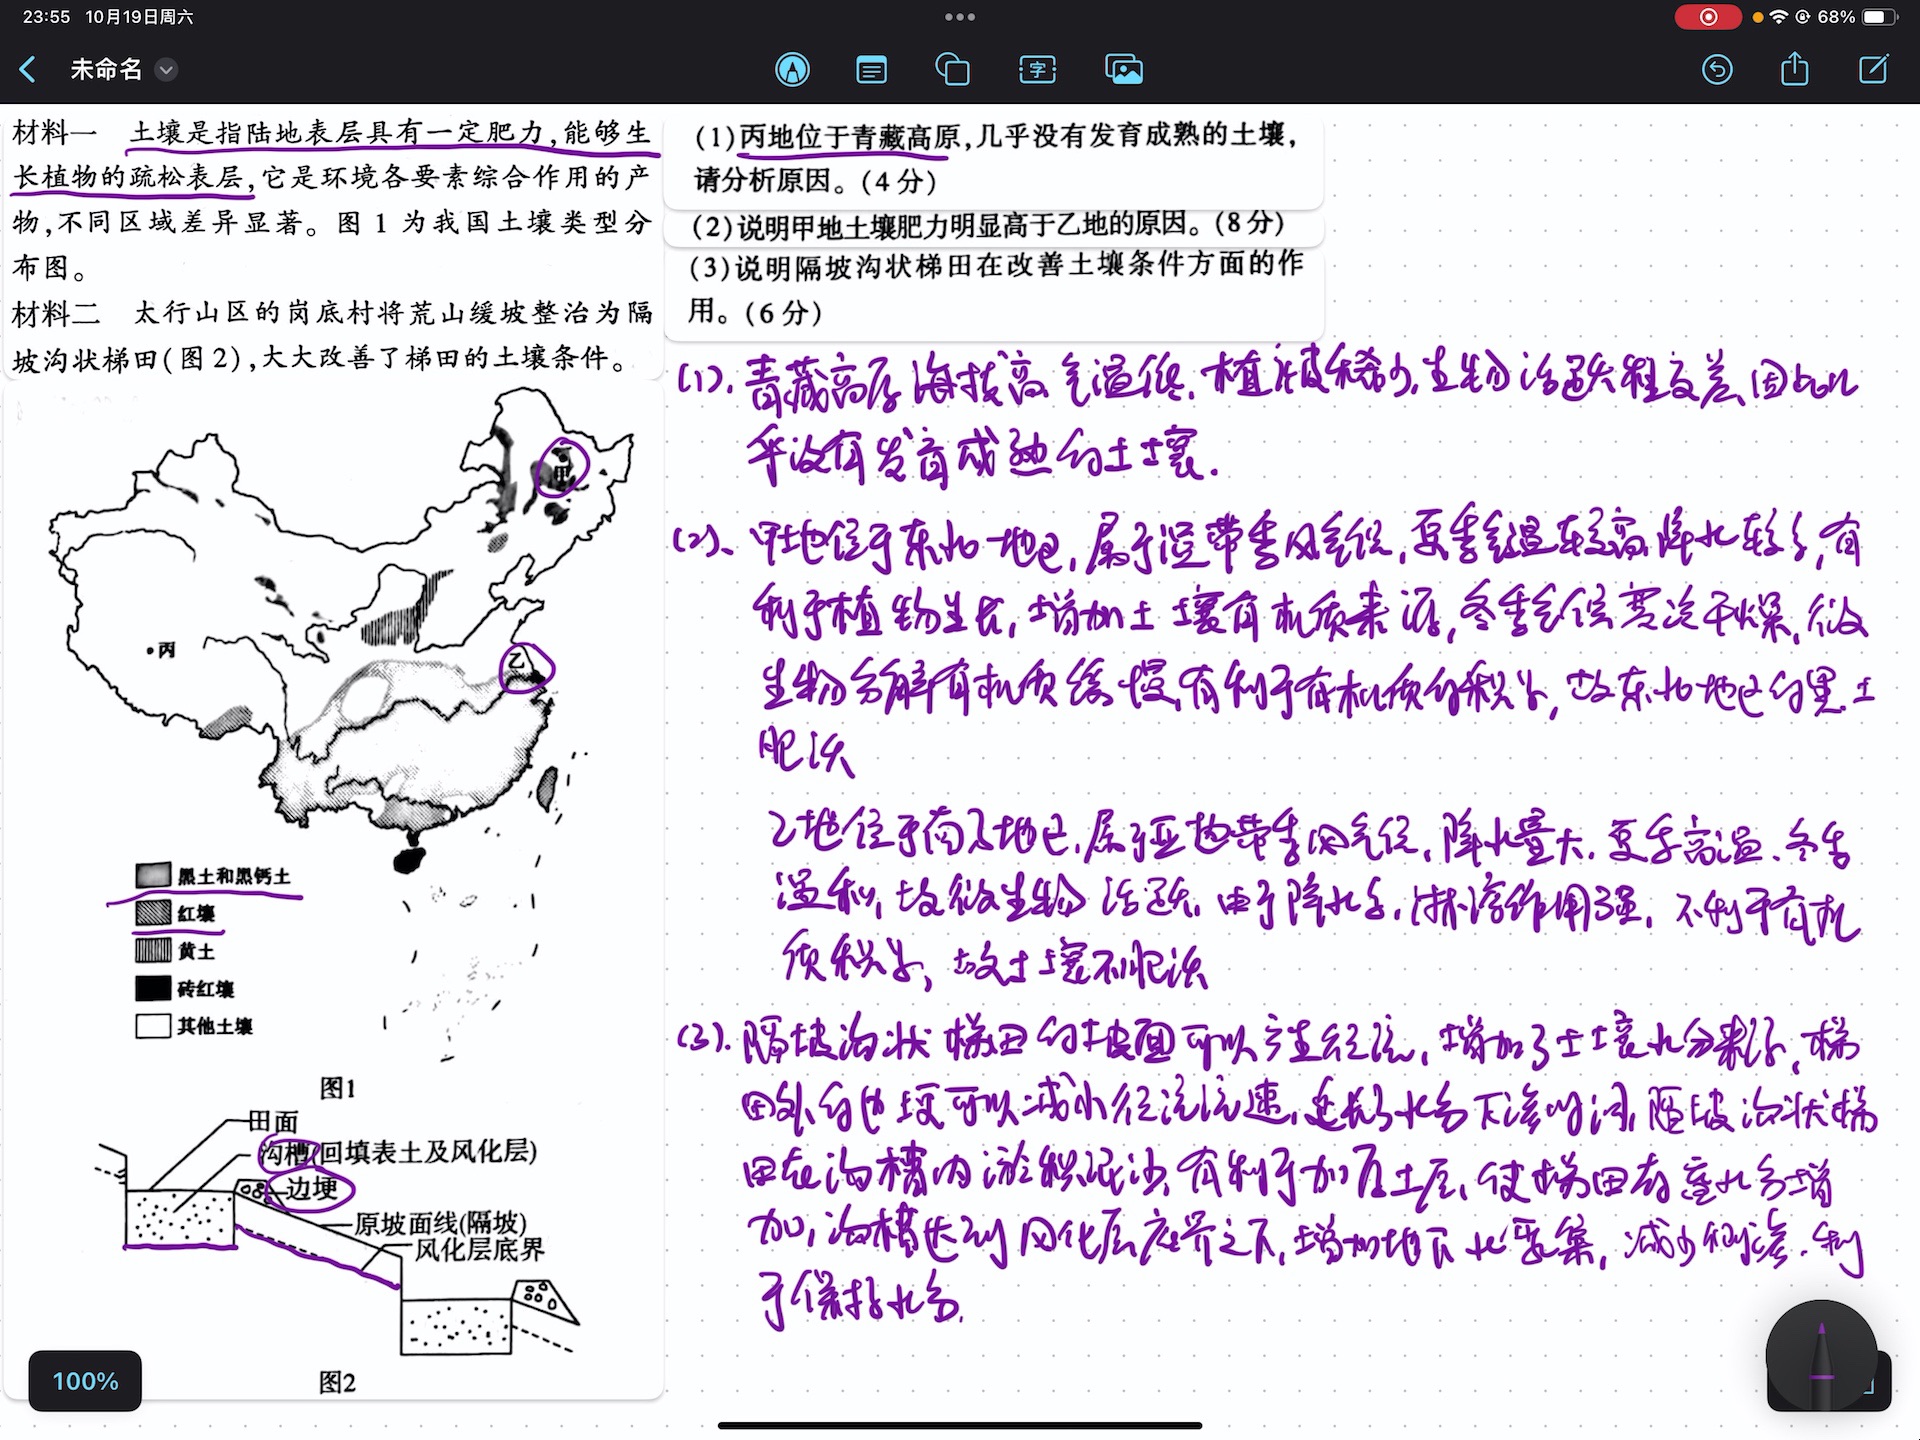 23:55 10月19日周六
68%
未命名
字
材料一 土壤是指陆地表层具有一定肥力,能够生
长植物的疏松表层,它是环境各要素综合作用的产
物,不同区域差异显著。图1为我国土壤类型分
布图。
材料二 太行山区的岗底村将荒山缓坡整治为隔
坡沟状梯田(图2),大大改善了梯田的土壤条件。
甲
乙
丙
黑土和黑钙土
红壤
黄土
砖红壤
其他土壤
图1
田面
沟槽(回填表土及风化层)
边埂
原坡面线(隔坡)
风化层底界
图2
100%
(1)丙地位于青藏高原,几乎没有发育成熟的土壤,
请分析原因。(4分)
(2)说明甲地土壤肥力明显高于乙地的原因。(8分)
(3)说明隔坡沟状梯田在改善土壤条件方面的作
用。(6分)
(1).青藏高原海拔高,气温低,植被稀少,生物活跃程度差,因此几
乎没有发育成熟的土壤.
(2)、甲地位于东北地区,属于温带季风气候,夏季气温较高,降水较多,有
利于植物生长,增加土壤有机质来源,冬季气候寒冷干燥,微
生物分解有机质缓慢,有利于有机质的积累,故东北地区的黑土
肥沃
乙地位于南方地区,属于亚热带季风气候,降水量大,夏季高温、冬季
温和,故微生物活跃,由于降水多,淋溶作用强,不利于有机
质积累,故土壤不肥沃
(3).隔坡沟状梯田的坡面可以产生径流,增加了土壤水分来源,梯
田外的边埂可以减小径流流速,延长了水分下渗时间,隔坡沟状梯
田在沟槽内淤积泥沙,有利于加厚土层,使梯田存蓄水分增
加,沟槽达到风化层底界之下,增加地下水汇集,减少侧渗,利
于保持水分.